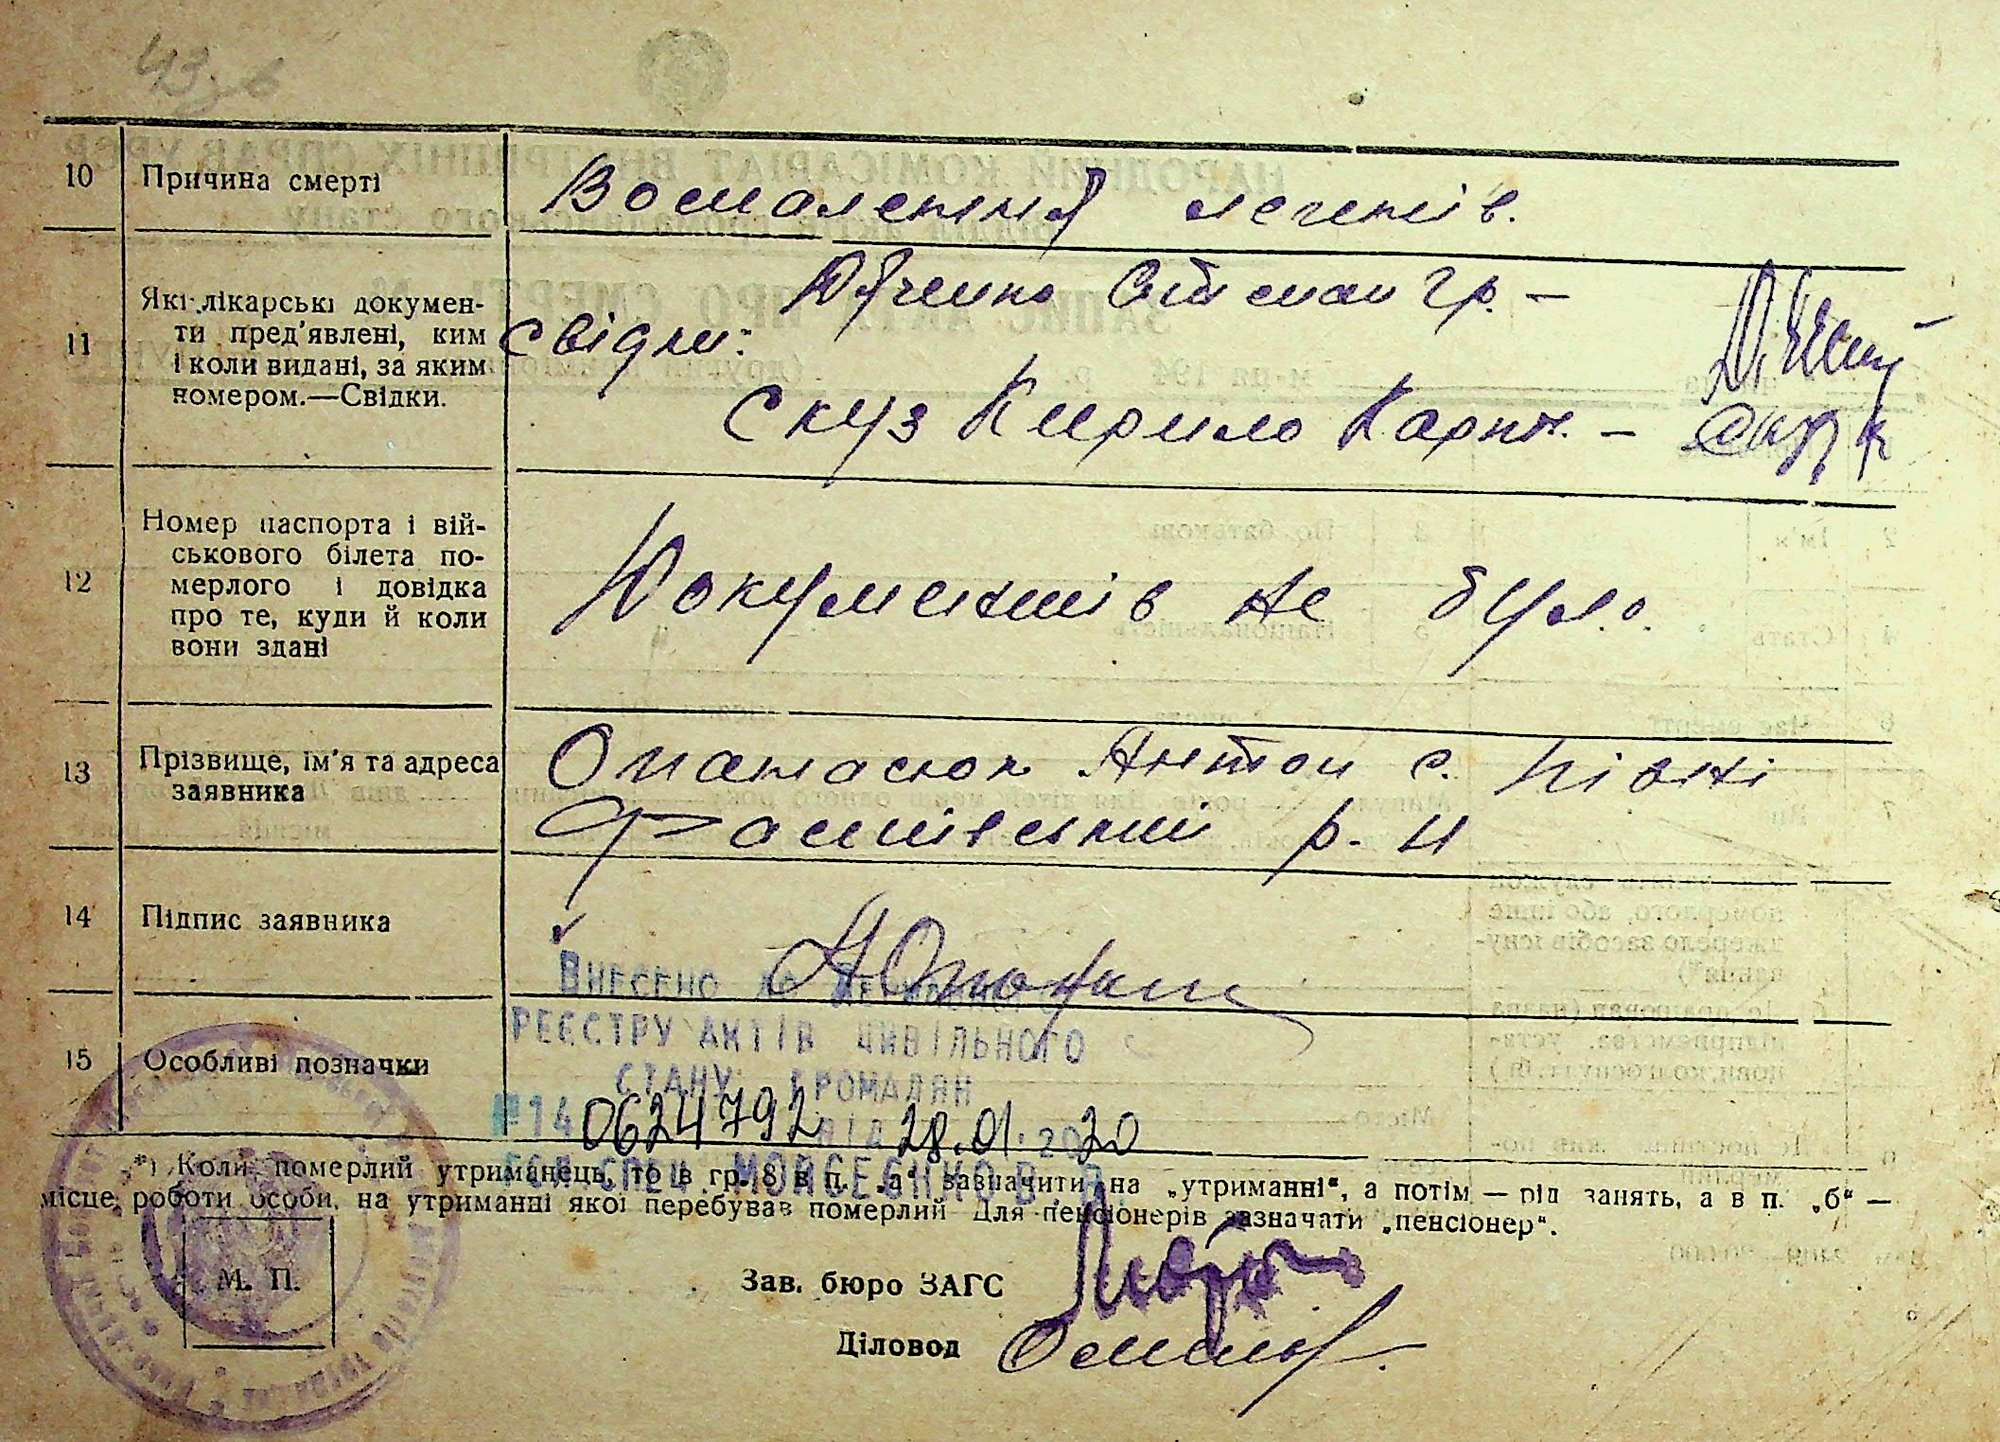 10 Причина смерті Воспалення легенів.
11 Які лікарські докумен-
ти пред'явлені, ким
і коли видані, за яким
номером.—Свідки.
Свідки: Юхченко Степан Гр. –
Скуз Кирило Карп. –
12 Номер паспорта і вій-
ськового білета по-
мерлого і довідка
про те, куди й коли
вони здані
Документів не було.
13 Прізвище, ім'я та адреса
заявника
Опанасюк Антон с. Півні
Фастівський р-н
14 Підпис заявника
Внесено до Державного
реєстру актів цивільного
стану громадян
15 Особливі позначки
№14 0624792 від 28.01.2020
гол спец Мойсеєнко В
*) Коли померлий утриманець, то в гр. 8 в п. „а“ зазначити на „утриманні“, а потім — рід занять, а в п. „б“ —
місце роботи особи, на утриманні якої перебував померлий Для пенсіонерів зазначати „пенсіонер“.
М. П.
Зав. бюро ЗАГС
Діловод